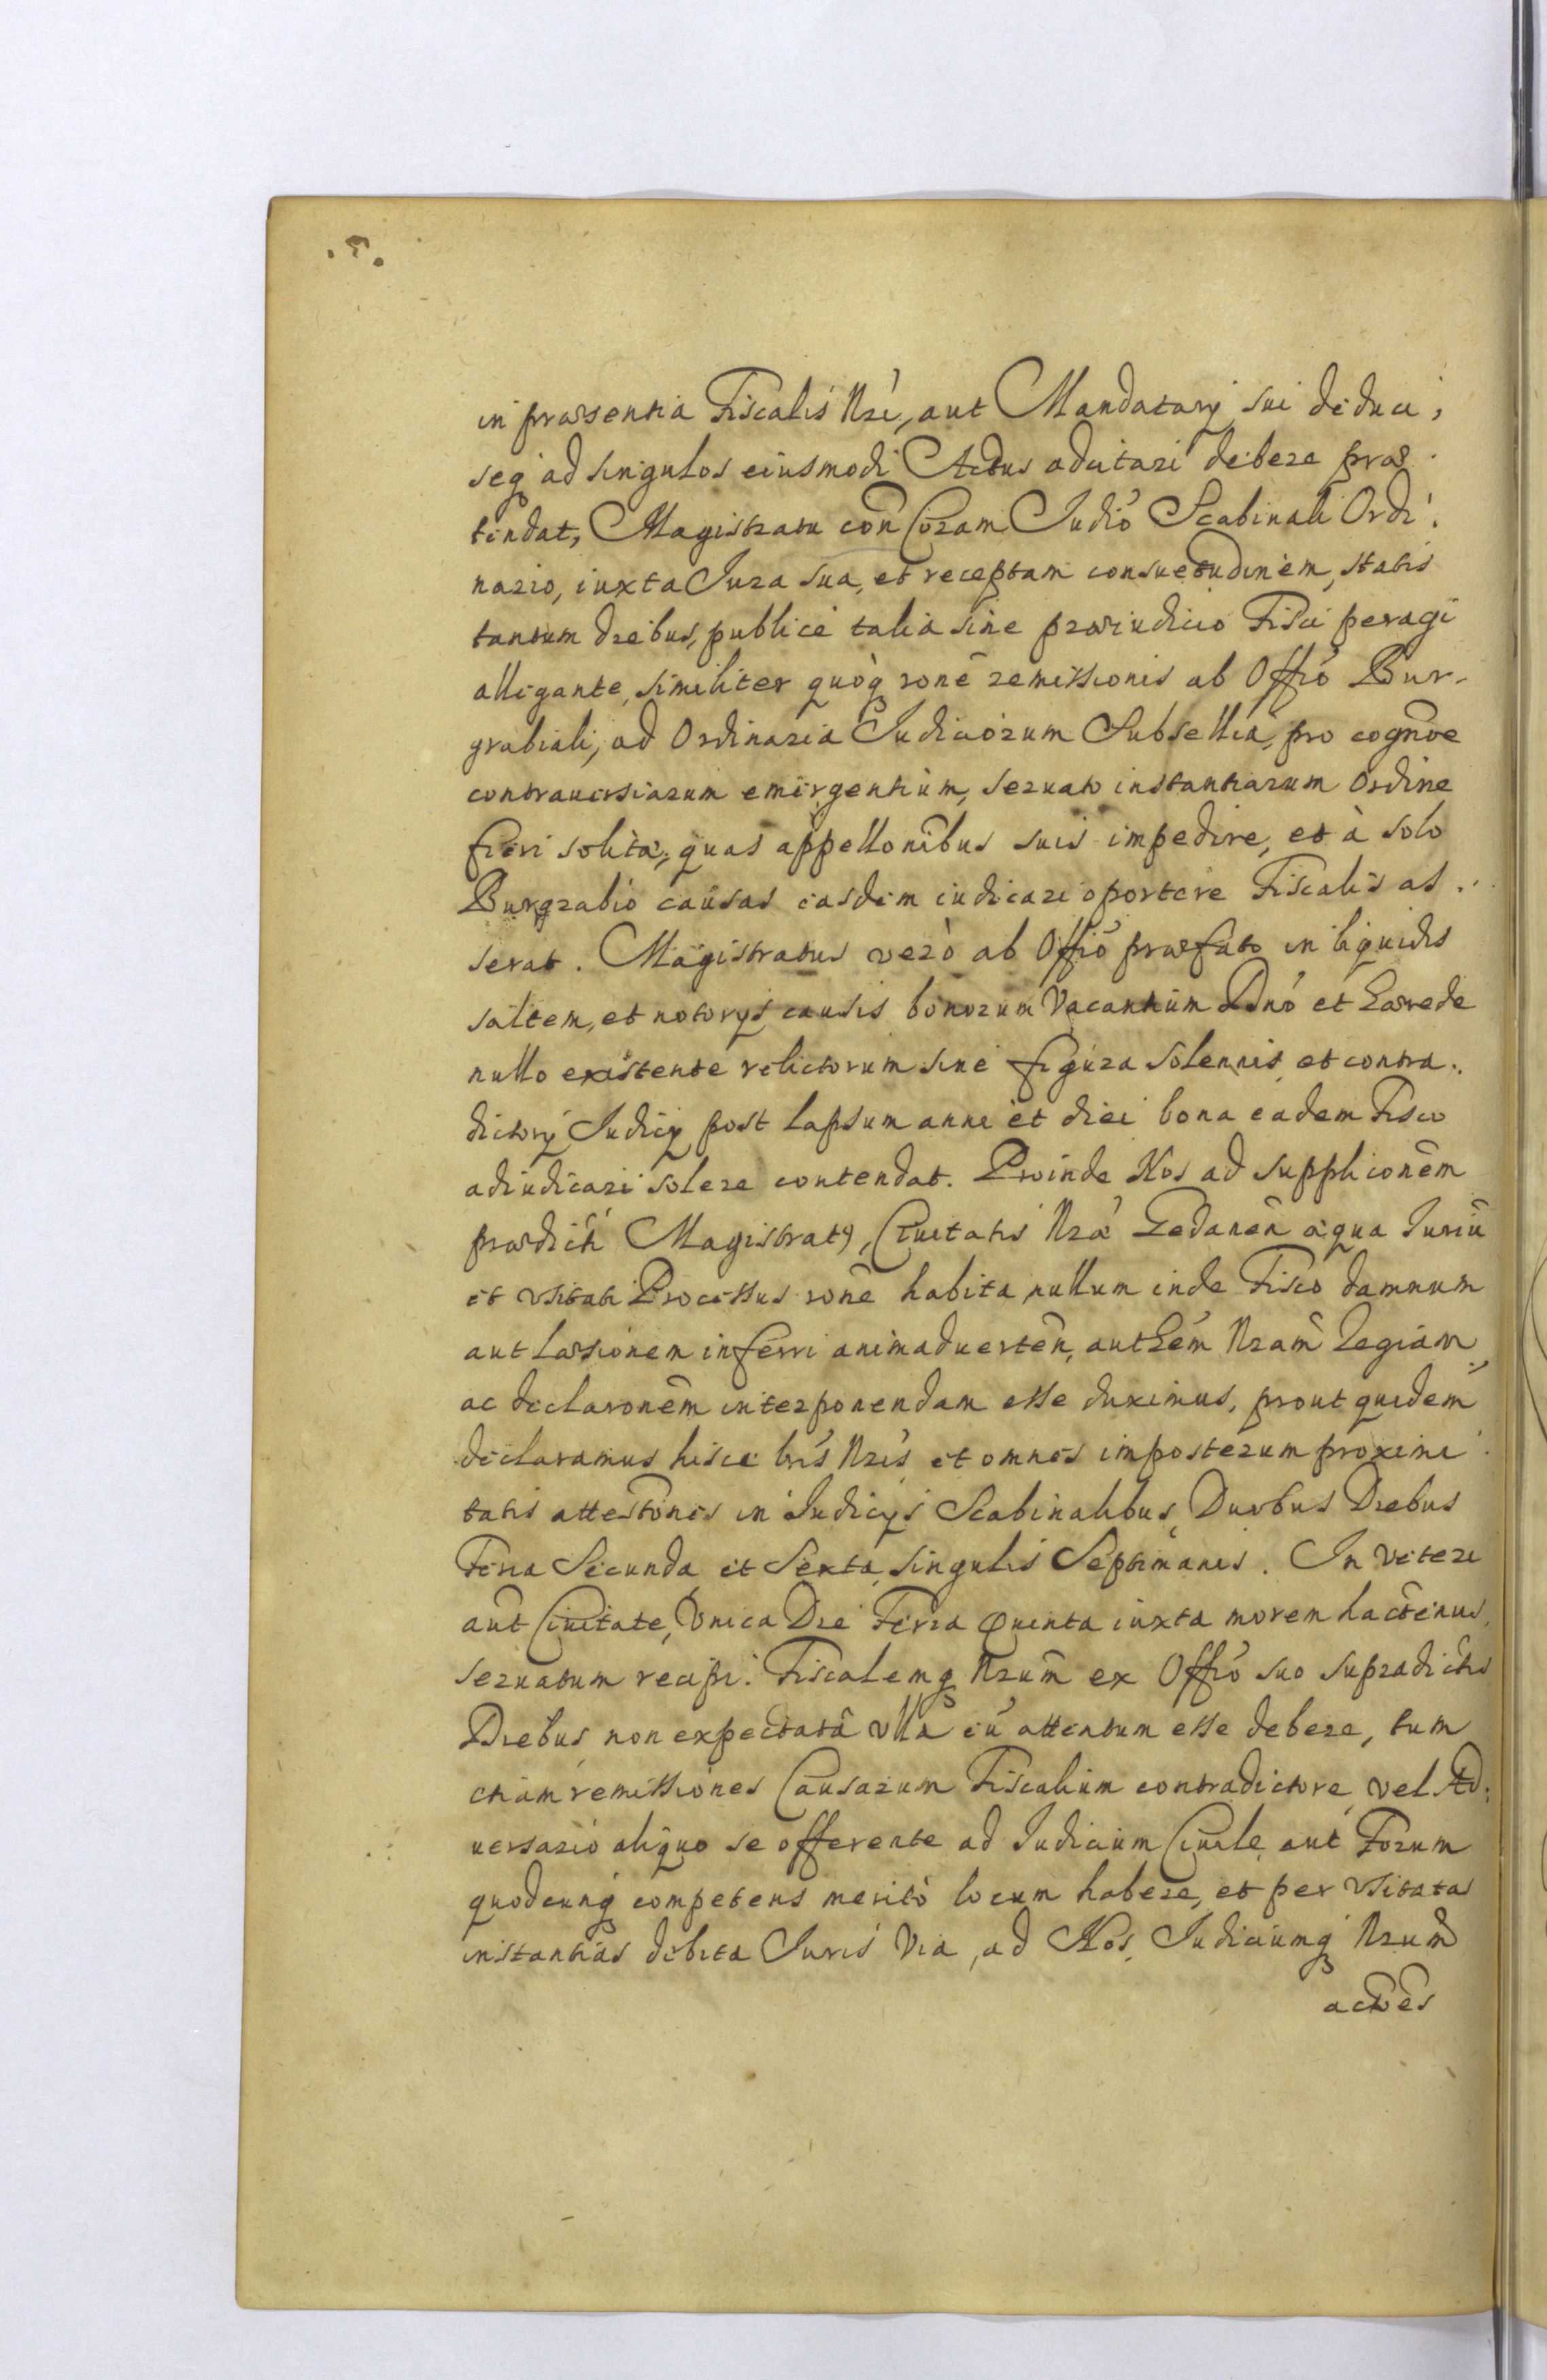 in præsentia Fiscalis Nri, aut Mandatarÿ sui deduci,
seq ad singulos eiusmodi Actus adcitari debere præ
tendat, Magistratu con Coram Judio Scabinali Ordi
nario, iuxta Jura sua, et receptam consuetudinem, statis
tantum diebus, publice talia sine præiudicio Fisci peragi
allegante, similiter quoq rone remissionis ab Offio Bur-
grabiali, ad Ordinaria Judiciorum Subsellia, pro cognoe
contrauersiarum emergentium, seruato instantiarum Ordine
fieri solitæ, quas appellonibus suis impedire, et à solo
Burgrabio causas easdem iudicari oportere Fiscalis as
serat. Magistratus verò ab Offio præfato in liquidis
saltem, et notorÿs causis bonorum Vacantium Dno et Hærede
nullo existente relictorum sine figura solennis et contra
dictorÿ Judicÿ post lapsum anni et diei bona eadem Fisco
adiudicari solere contendat. Proinde Nos ad suppliconem
prædicti Magistratus, Ciuitatis Nræ Gedanen æqua Juriu
et vsitati Processus rone habita nullum inde Fisco damnum
aut læsionem inferri animaduerten, authem Nram Regiam
ac declaronem interponendam esse duximus, prout quidem
declaramus hisce lris Nris et omnes imposterum proximi
tatis attestones in Judicÿs Scabinalibus Duobus Diebus
Feria Secunda et Sexta, singulis Septimanis. In Veteri
aut Ciuitate, Vnica Die Feria Quinta iuxta morem hactenus
seruatum recipi. Fiscalemq Nrum ex Offio suo supradictis
Diebus non expectatâ vllâ cit attentum esse debere, tum
etiam remissiones Causarum Fiscalium contradictore, vel Ad
uersario aliquo se offerente ad Judicium Ciuile aut Forum
quodcunq competens meritò locum habere, et per vsitatas
instantias debita Juris Via, ad Nos, Judiciumq Nrum
actoes